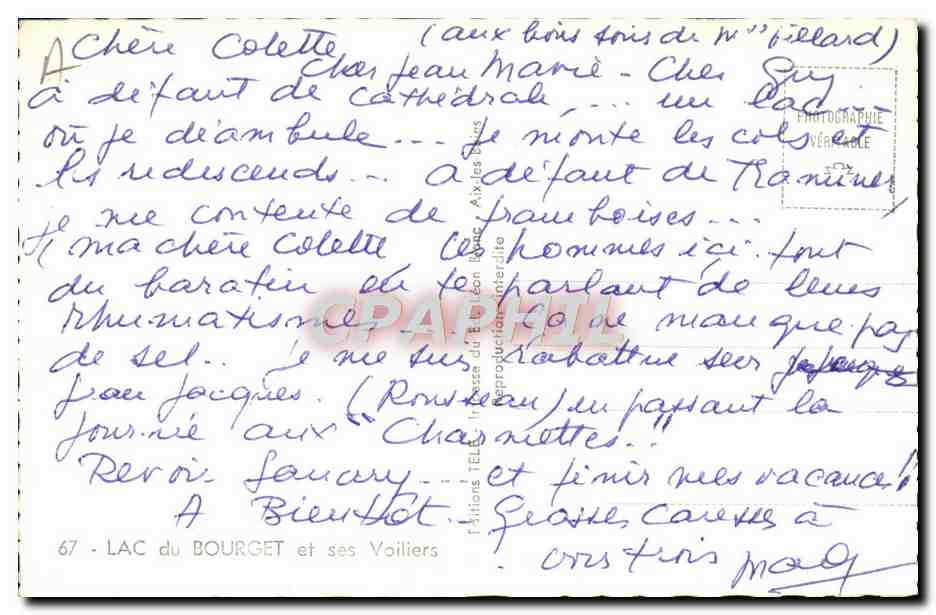 Chère Colette (aux bons soins de Villard)
A
Cher Jean Marie - Cher Guy
à défaut de cathédrale ... un lac ...
où je déambule ... Je monte les cols et
les redescends ... A défaut de
je me contente de framboises ...
ma chère Colette les hommes ici font
du baratin en te parlant de leurs
rhumatismes ... ça ne manque pas
de sel .. je me suis rabattue sur
Jean Jacques. (Rousseau) en passant la
journée aux "Charmettes.."
Revoir Sanary ... et finir mes vacances!!
A Bientôt - Grosses Caresses à
vous trois Mado
PHOTOGRAPHIE
VÉRITABLE
67 - LAC du BOURGET et ses Voiliers
Editions TELE, Imprimerie du B Léon Blanc, Aix-les-Bains
Reproduction interdite
CPARPHIL